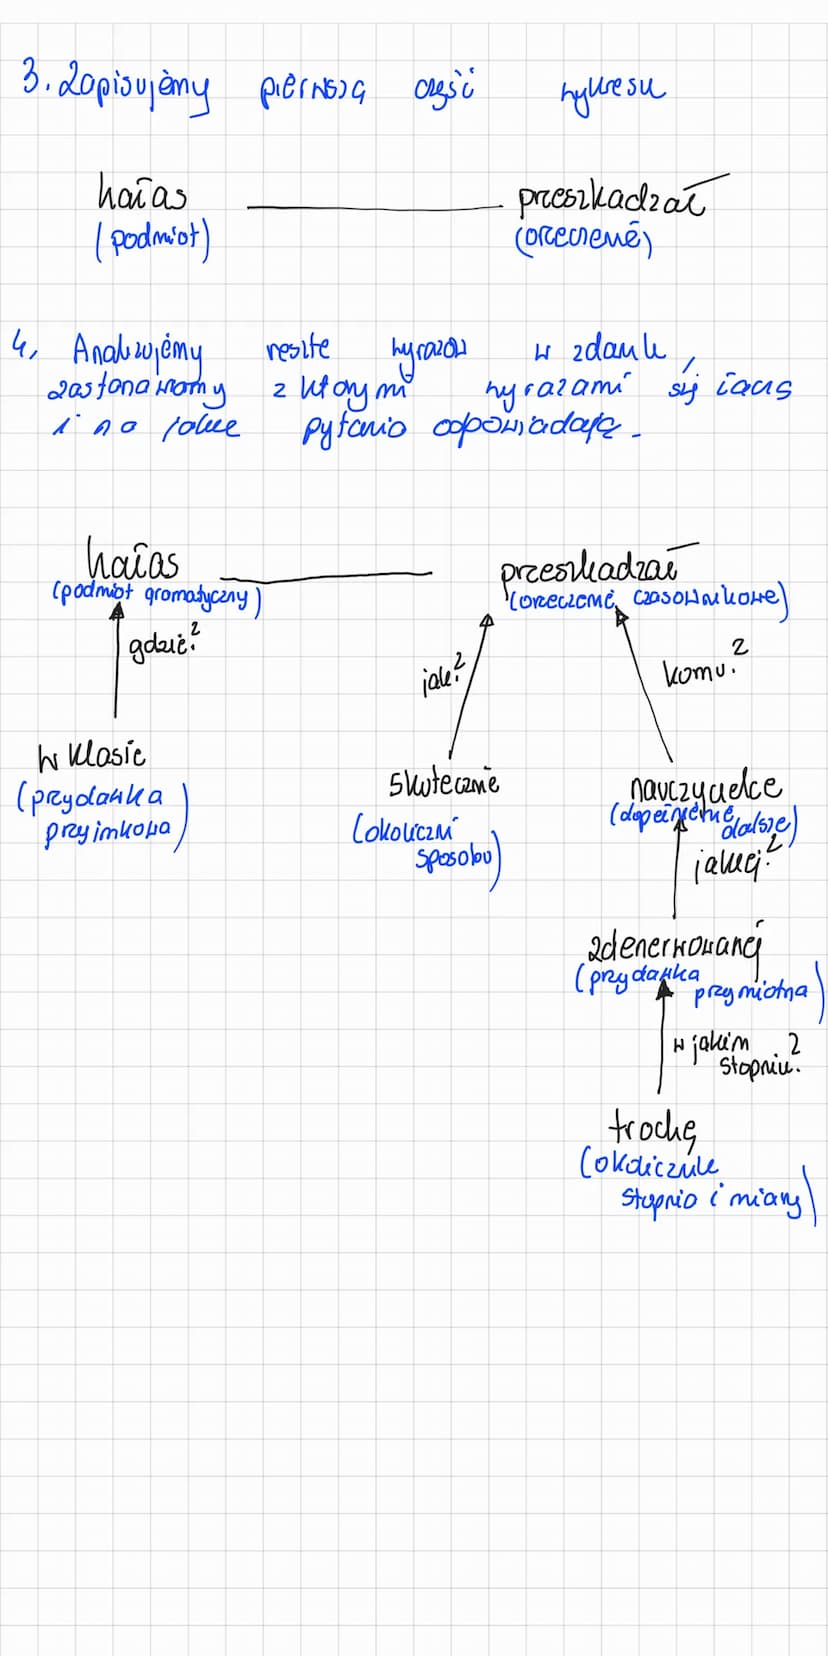 3. Zapisujemy pierwszą część wykresu
hałas przeszkadzał
(podmiot) (orzeczenie)
4, Analizujemy resztę wyrazów w zdaniu,
zastanawiamy z którymi wyrazami się łączą
i na jakie pytania odpowiadają.
hałas przeszkadzał
(podmiot gramatyczny) (orzeczenie czasownikowe)
gdzie? jak? komu?
w klasie skutecznie nauczycielce
(przydawka przyimkowa) (okoliczni sposobu) (dopełnienie dalsze)
jakiej?
zdenerwowanej
(przydawka przymiotna)
w jakim stopniu?
trochę
(okolicznik
stopnia i miary)